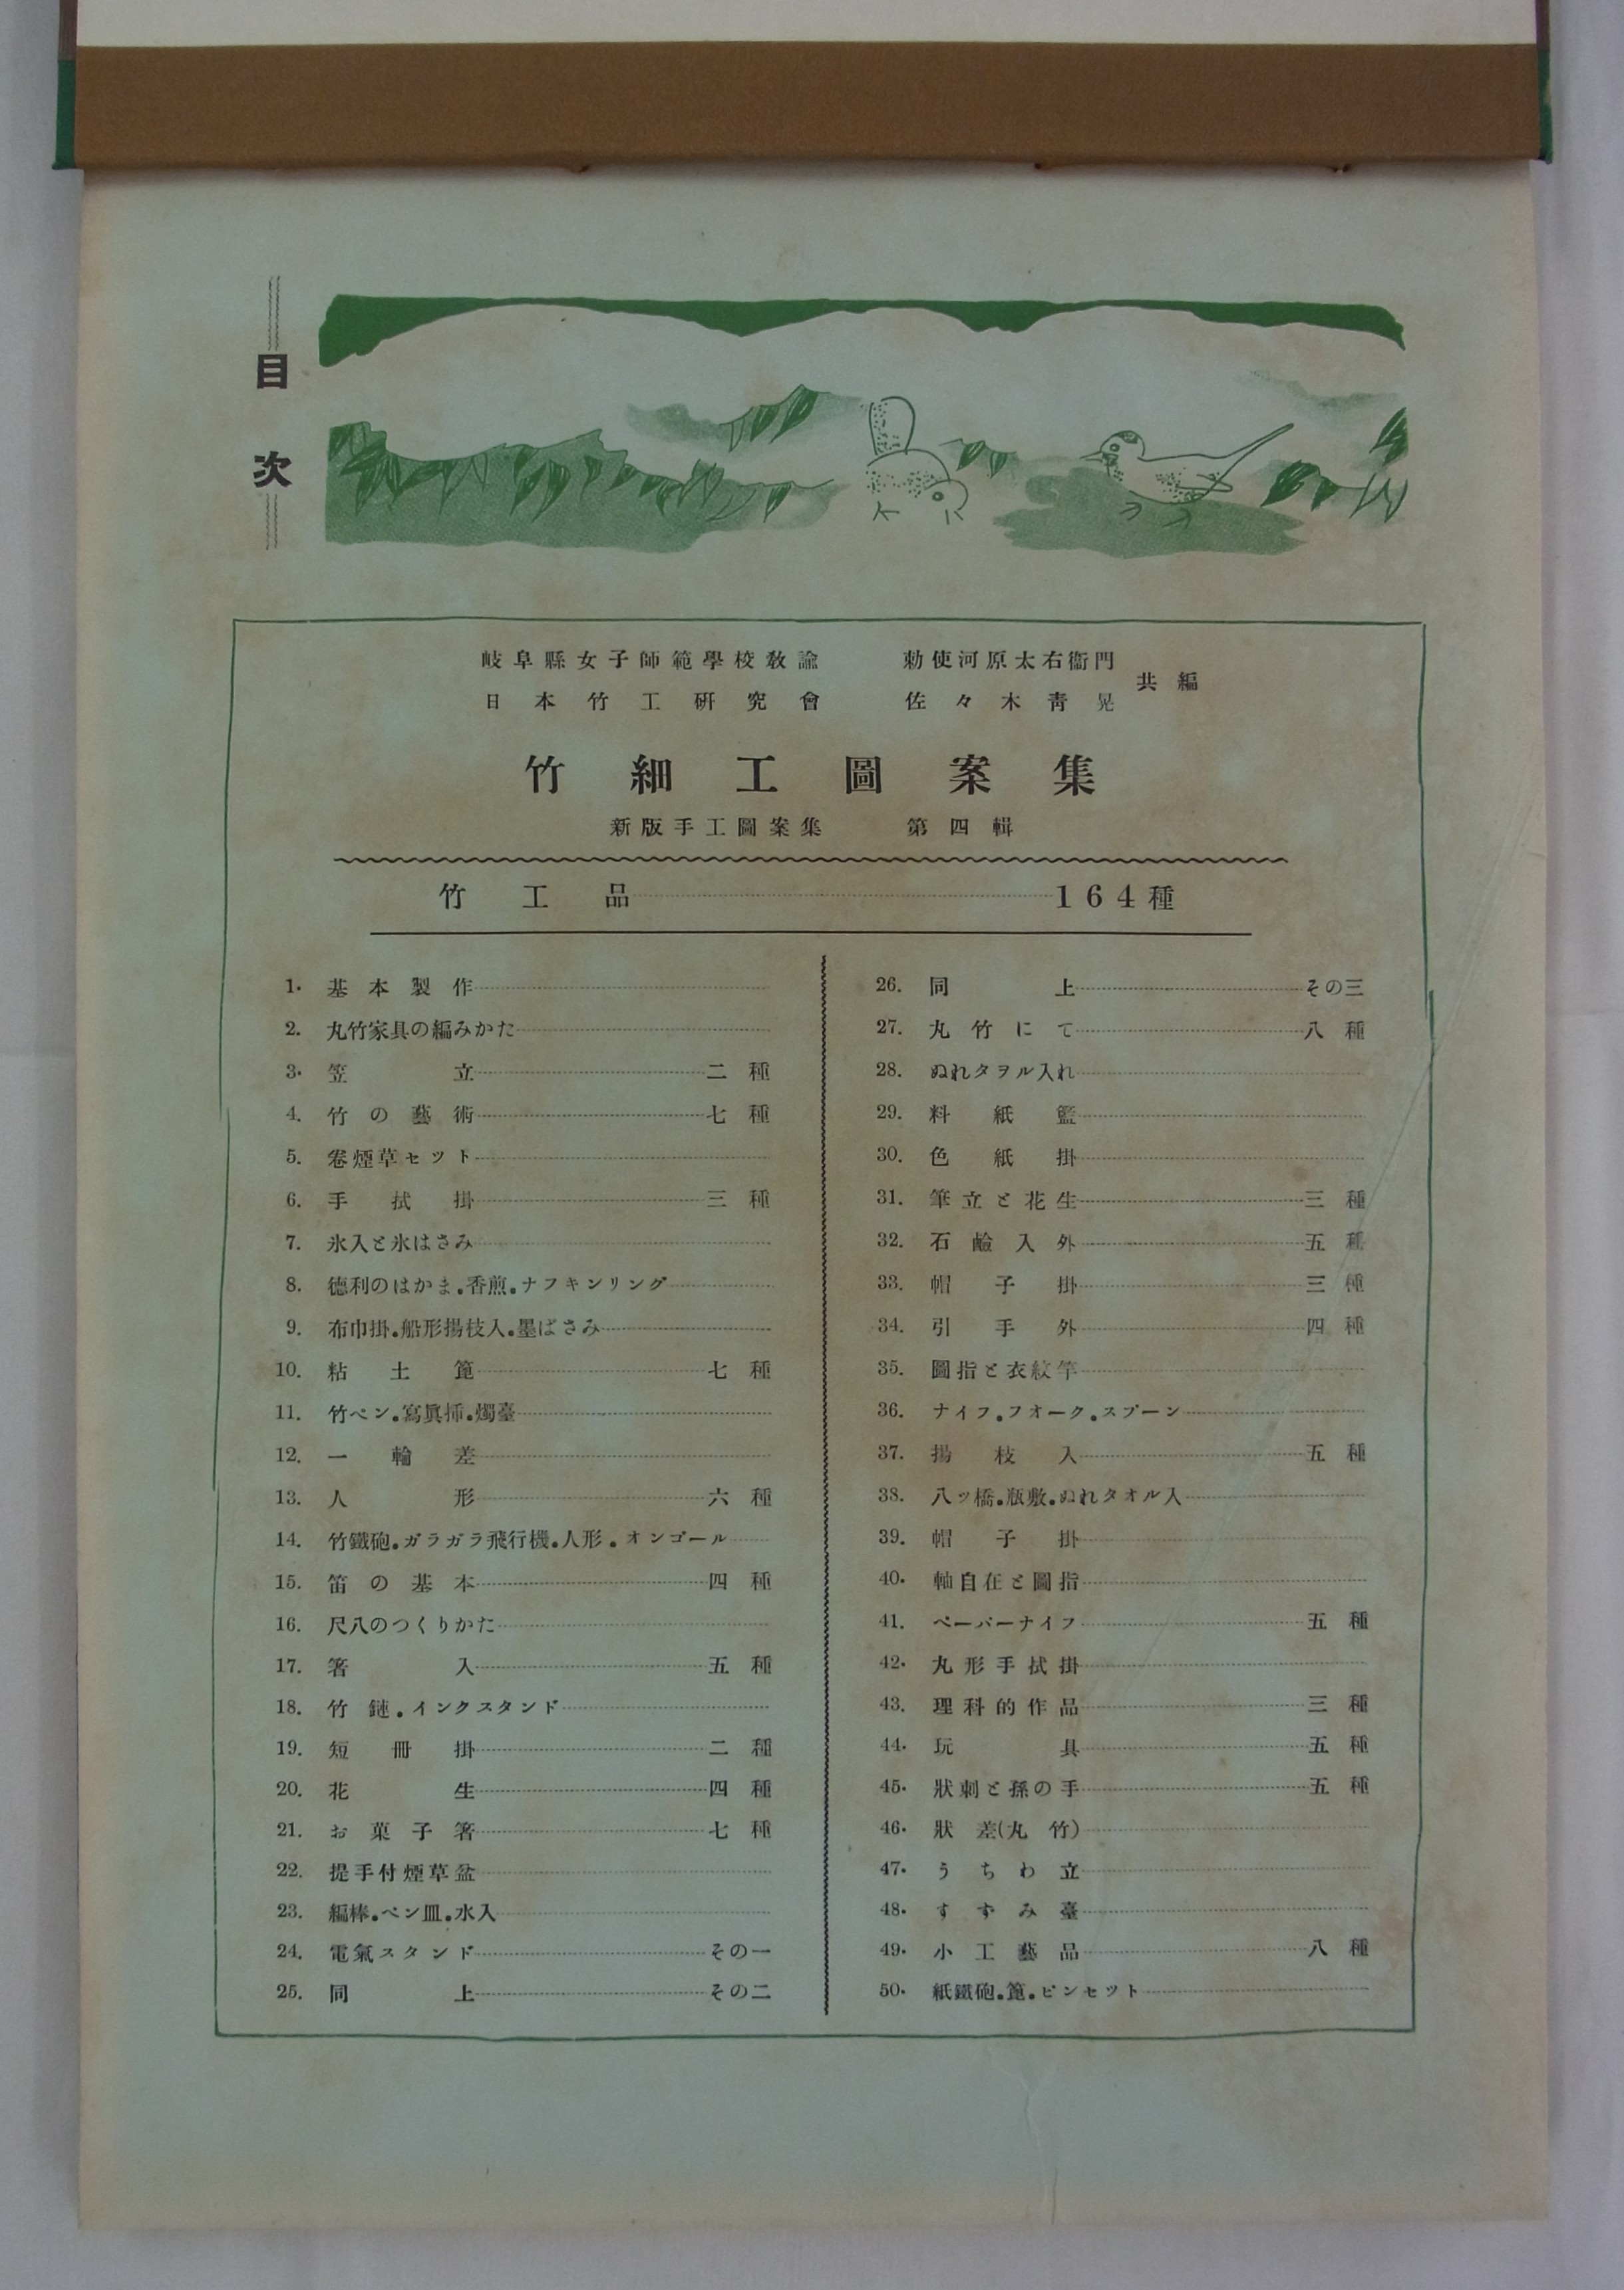 目次
岐阜縣女子師範學校教諭 勅使河原太右衞門
日本竹工硏究會 佐々木靑晃
共編
竹細工圖案集
新版手工圖案集 第四輯
竹工品 164種
1. 基本製作
2. 丸竹家具の編みかた
3. 笠立 二種
4. 竹の藝術 七種
5. 卷煙草セット
6. 手拭掛 三種
7. 氷入と氷はさみ
8. 德利のはかま.香煎.ナフキンリング
9. 布巾掛.船形揚枝入.墨ばさみ
10. 粘土篦 七種
11. 竹ペン.寫眞揷.燭臺
12. 一輪差
13. 人形 六種
14. 竹鐵砲.ガラガラ飛行機.人形.オンゴール
15. 笛の基本 四種
16. 尺八のつくりかた
17. 箸入 五種
18. 竹鏈.インクスタンド
19. 短冊掛 二種
20. 花生 四種
21. お菓子箸 七種
22. 提手付煙草盆
23. 編棒.ペン皿.水入
24. 電氣スタンド その一
25. 同上 その二
26. 同上 その三
27. 丸竹にて 八種
28. ぬれタヲル入れ
29. 料紙籃
30. 色紙掛
31. 筆立と花生 三種
32. 石鹼入外 五種
33. 帽子掛 三種
34. 引手外 四種
35. 圖指と衣紋竿
36. ナイフ.フオーク.スプーン
37. 揚枝入 五種
38. 八ッ橋.瓶敷.ぬれタオル入
39. 帽子掛
40. 軸自在と圖指
41. ペーパーナイフ 五種
42. 丸形手拭掛
43. 理科的作品 三種
44. 玩具 五種
45. 狀刺と孫の手 五種
46. 狀差(丸竹)
47. うちわ立
48. すずみ臺
49. 小工藝品 八種
50. 紙鐵砲.篦.ピンセット